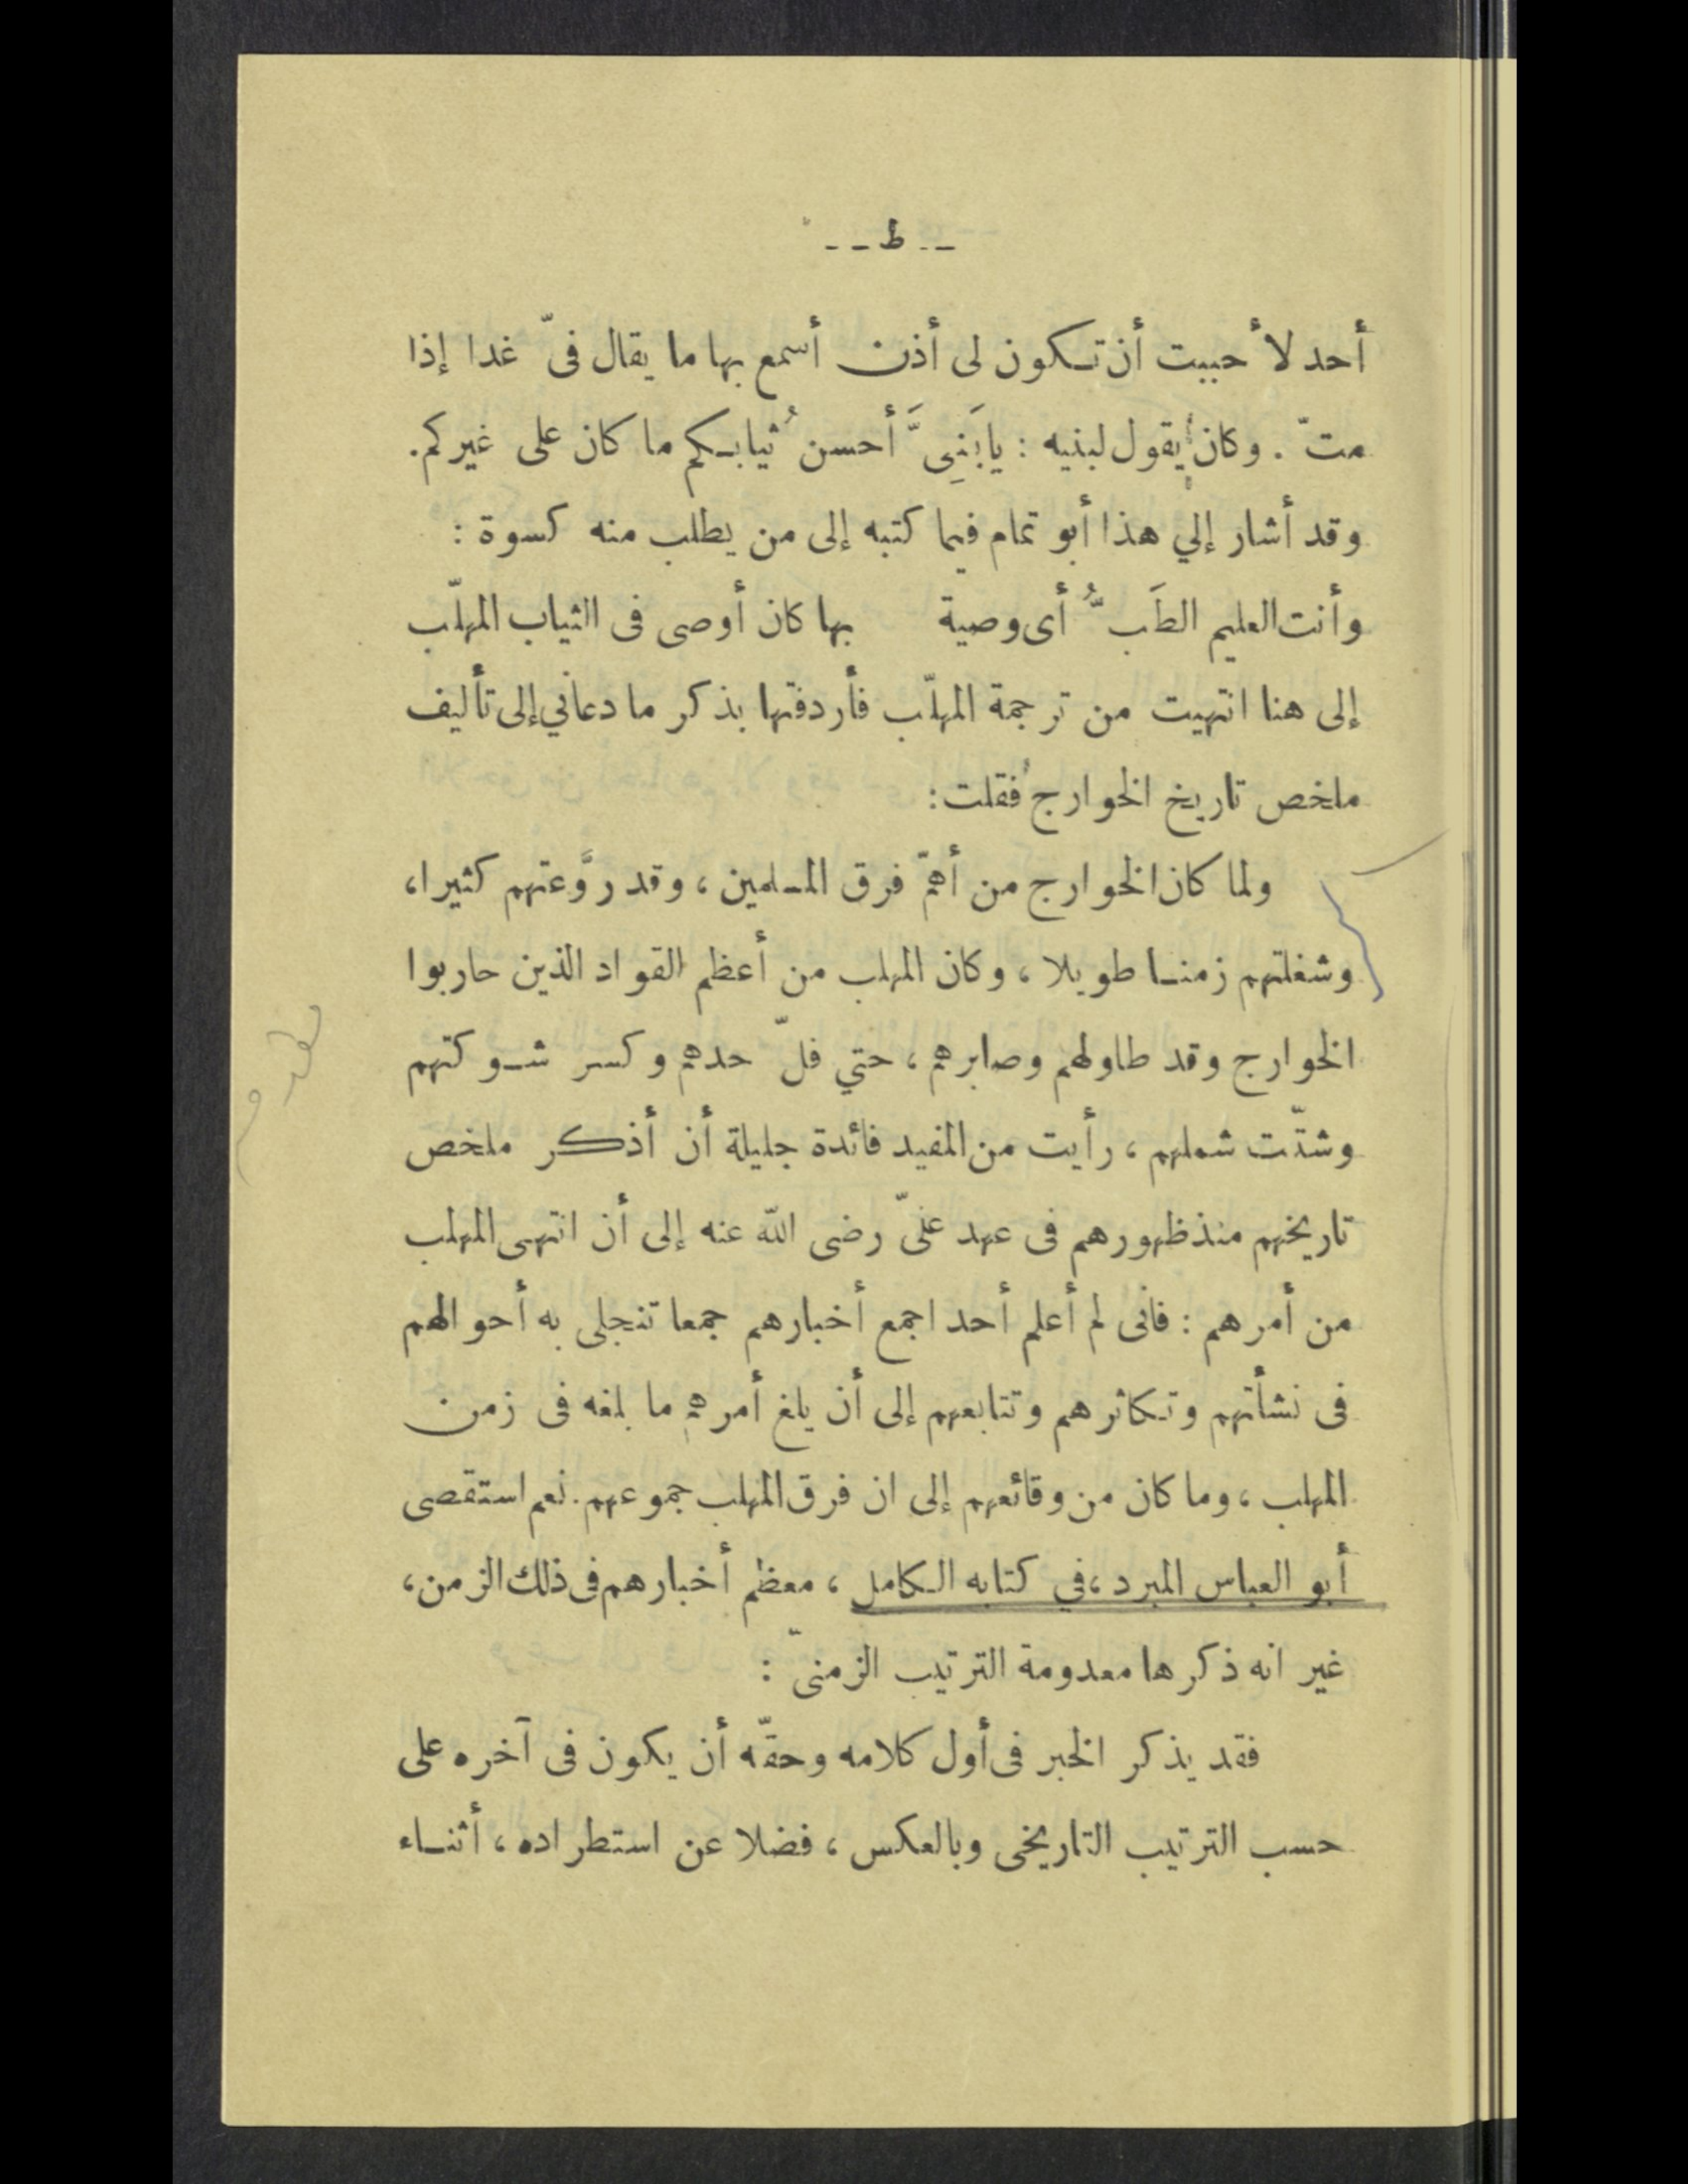 -- ط --
أحد لأحببت أن تكون لى أذن أسمع بها ما يقال فىّ غدا إذا
متّ . وكان يقول لبنيه : يابَنِىَّ أحسنُ ثيابكم ما كان على غيركم.
وقد أشار إلي هذا أبو تمام فيما كتبه إلى من يطلب منه كسوة :
وأنت العليم الطَبُّ أى وصية بها كان أوصى فى الثياب المهلّب
إلى هنا انتهيت من ترجمة المهلّب فأردفتها بذكر ما دعاني إلى تأليف
ملخص تاريخ الخوارج فقلت:
ولما كان الخوارج من أهمّ فرق المسلمين ، وقد روَّعتهم كثيرا،
وشغلتهم زمنا طويلا ، وكان المهلب من أعظم القواد الذين حاربوا
الخوارج وقد طاولهم وصابرهم ، حتي فلّ حدهم وكسر شوكتهم
وشتّت شملهم ، رأيت من المفيد فائدة جليلة أن أذكر ملخص
تاريخهم منذ ظهورهم فى عهد علىّ رضى الله عنه إلى أن انتهى المهلب
من أمرهم : فانى لم أعلم أحد اجمع أخبارهم جمعا تنجلى به أحوالهم
فى نشأتهم وتكاثرهم وتتابعهم إلى أن بلغ أمرهم ما بلغه فى زمن
المهلب ، وما كان من وقائعهم إلى ان فرق المهلب جموعهم. نعم استقصى
أبو العباس المبرد ، في كتابه الكامل ، معظم أخبارهم فى ذلك الزمن ،
غير انه ذكرها معدومة الترتيب الزمنىّ :
فقد يذكر الخبر فى أول كلامه وحقّه أن يكون فى آخره على
حسب الترتيب التاريخى وبالعكس ، فضلا عن استطراده ، أثناء